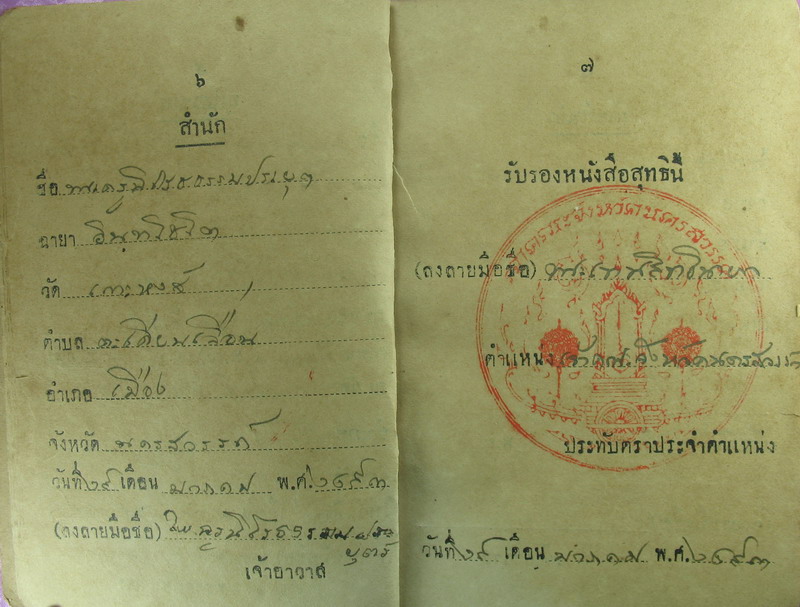 ๖
สำนัก
ชื่อ พระครูนิโรธธรรมประยุต
ฉายา อินฺทโชโต
วัด เกาะหงส์
ตำบล ตะเคียนเลื่อน
อำเภอ เมือง
จังหวัด นครสวรรค์
วันที่ ๒๙ เดือน มกราคม พ.ศ. ๒๔๙๓
(ลงลายมือชื่อ) พระครูนิโรธธรรมประ
ยุตร์
เจ้าอาวาส
๗
รับรองหนังสือสุทธินี้
(ลงลายมือชื่อ)
ตำแหน่ง นครสวรรค์
ประทับตราประจำตำแหน่ง
วันที่ ๒๙ เดือน มกราคม พ.ศ. ๒๔๙๓